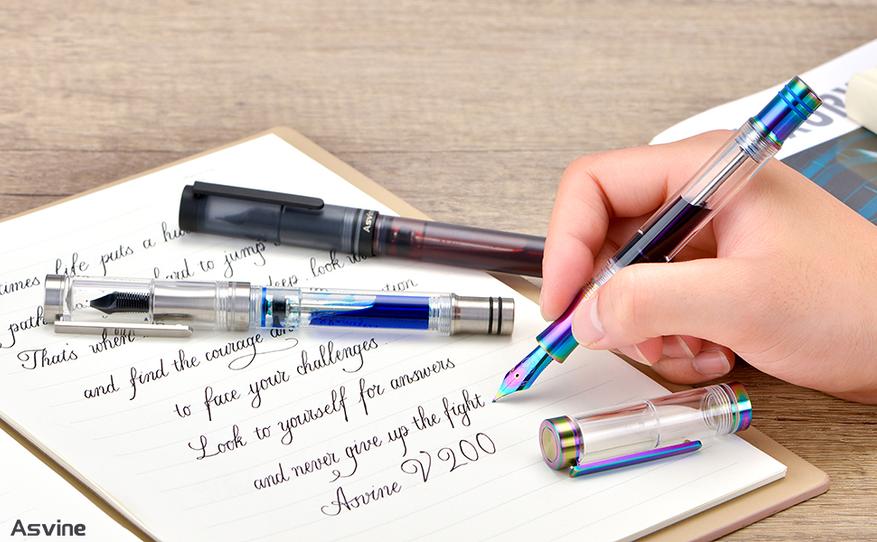 life puts a
hard to jump
deep, look
path
That's when
and find the courage
to face your challenges.
Look to yourself for answers
and never give up the fight
Asvine V200
Asvine
Asvine